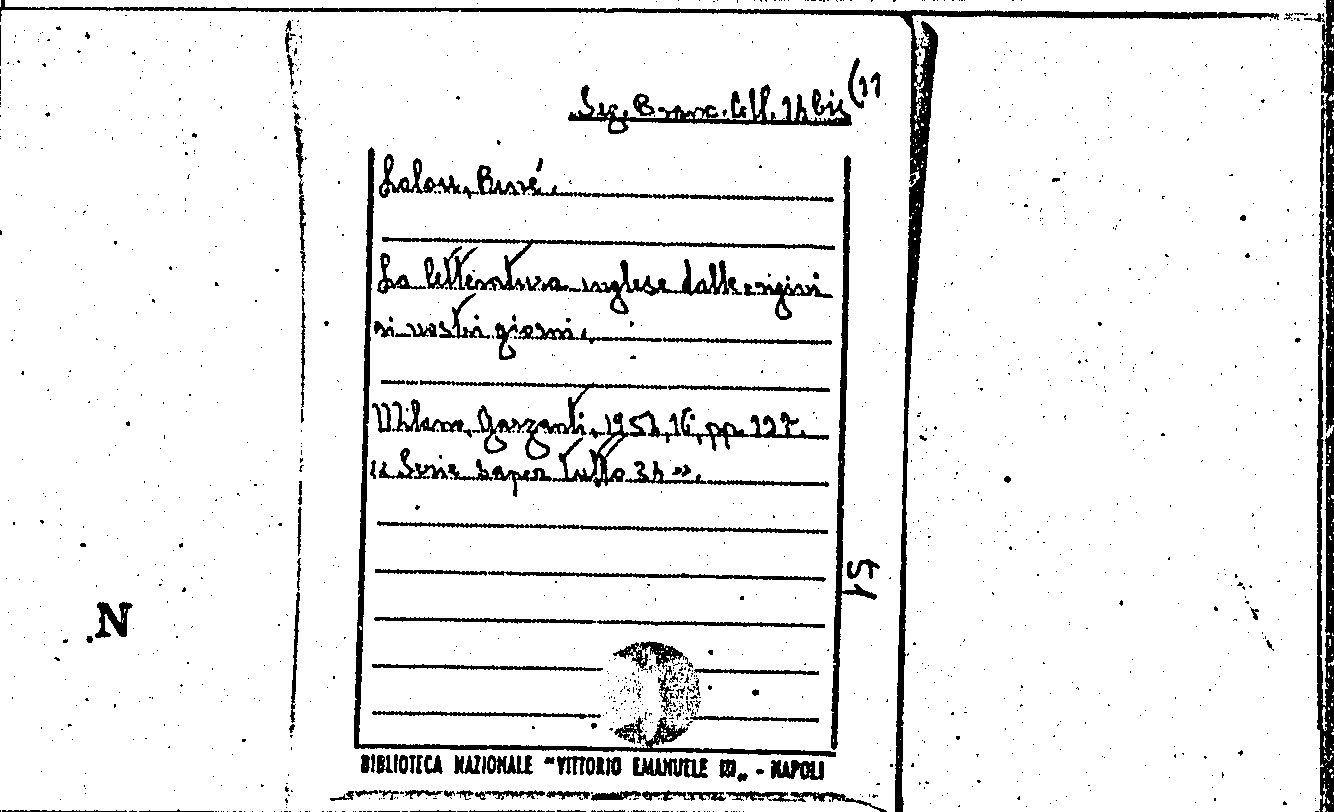 Sez. Branc. Coll. 14 bis (11
Lalou, René.
La letteratura inglese dalle origini
ai nostri giorni.
Milano, Garzanti, 1954, 16, pp. 127.
« Serie saper tutto 34 ».
51
N
BIBLIOTECA NAZIONALE "VITTORIO EMANUELE III„ - NAPOLI